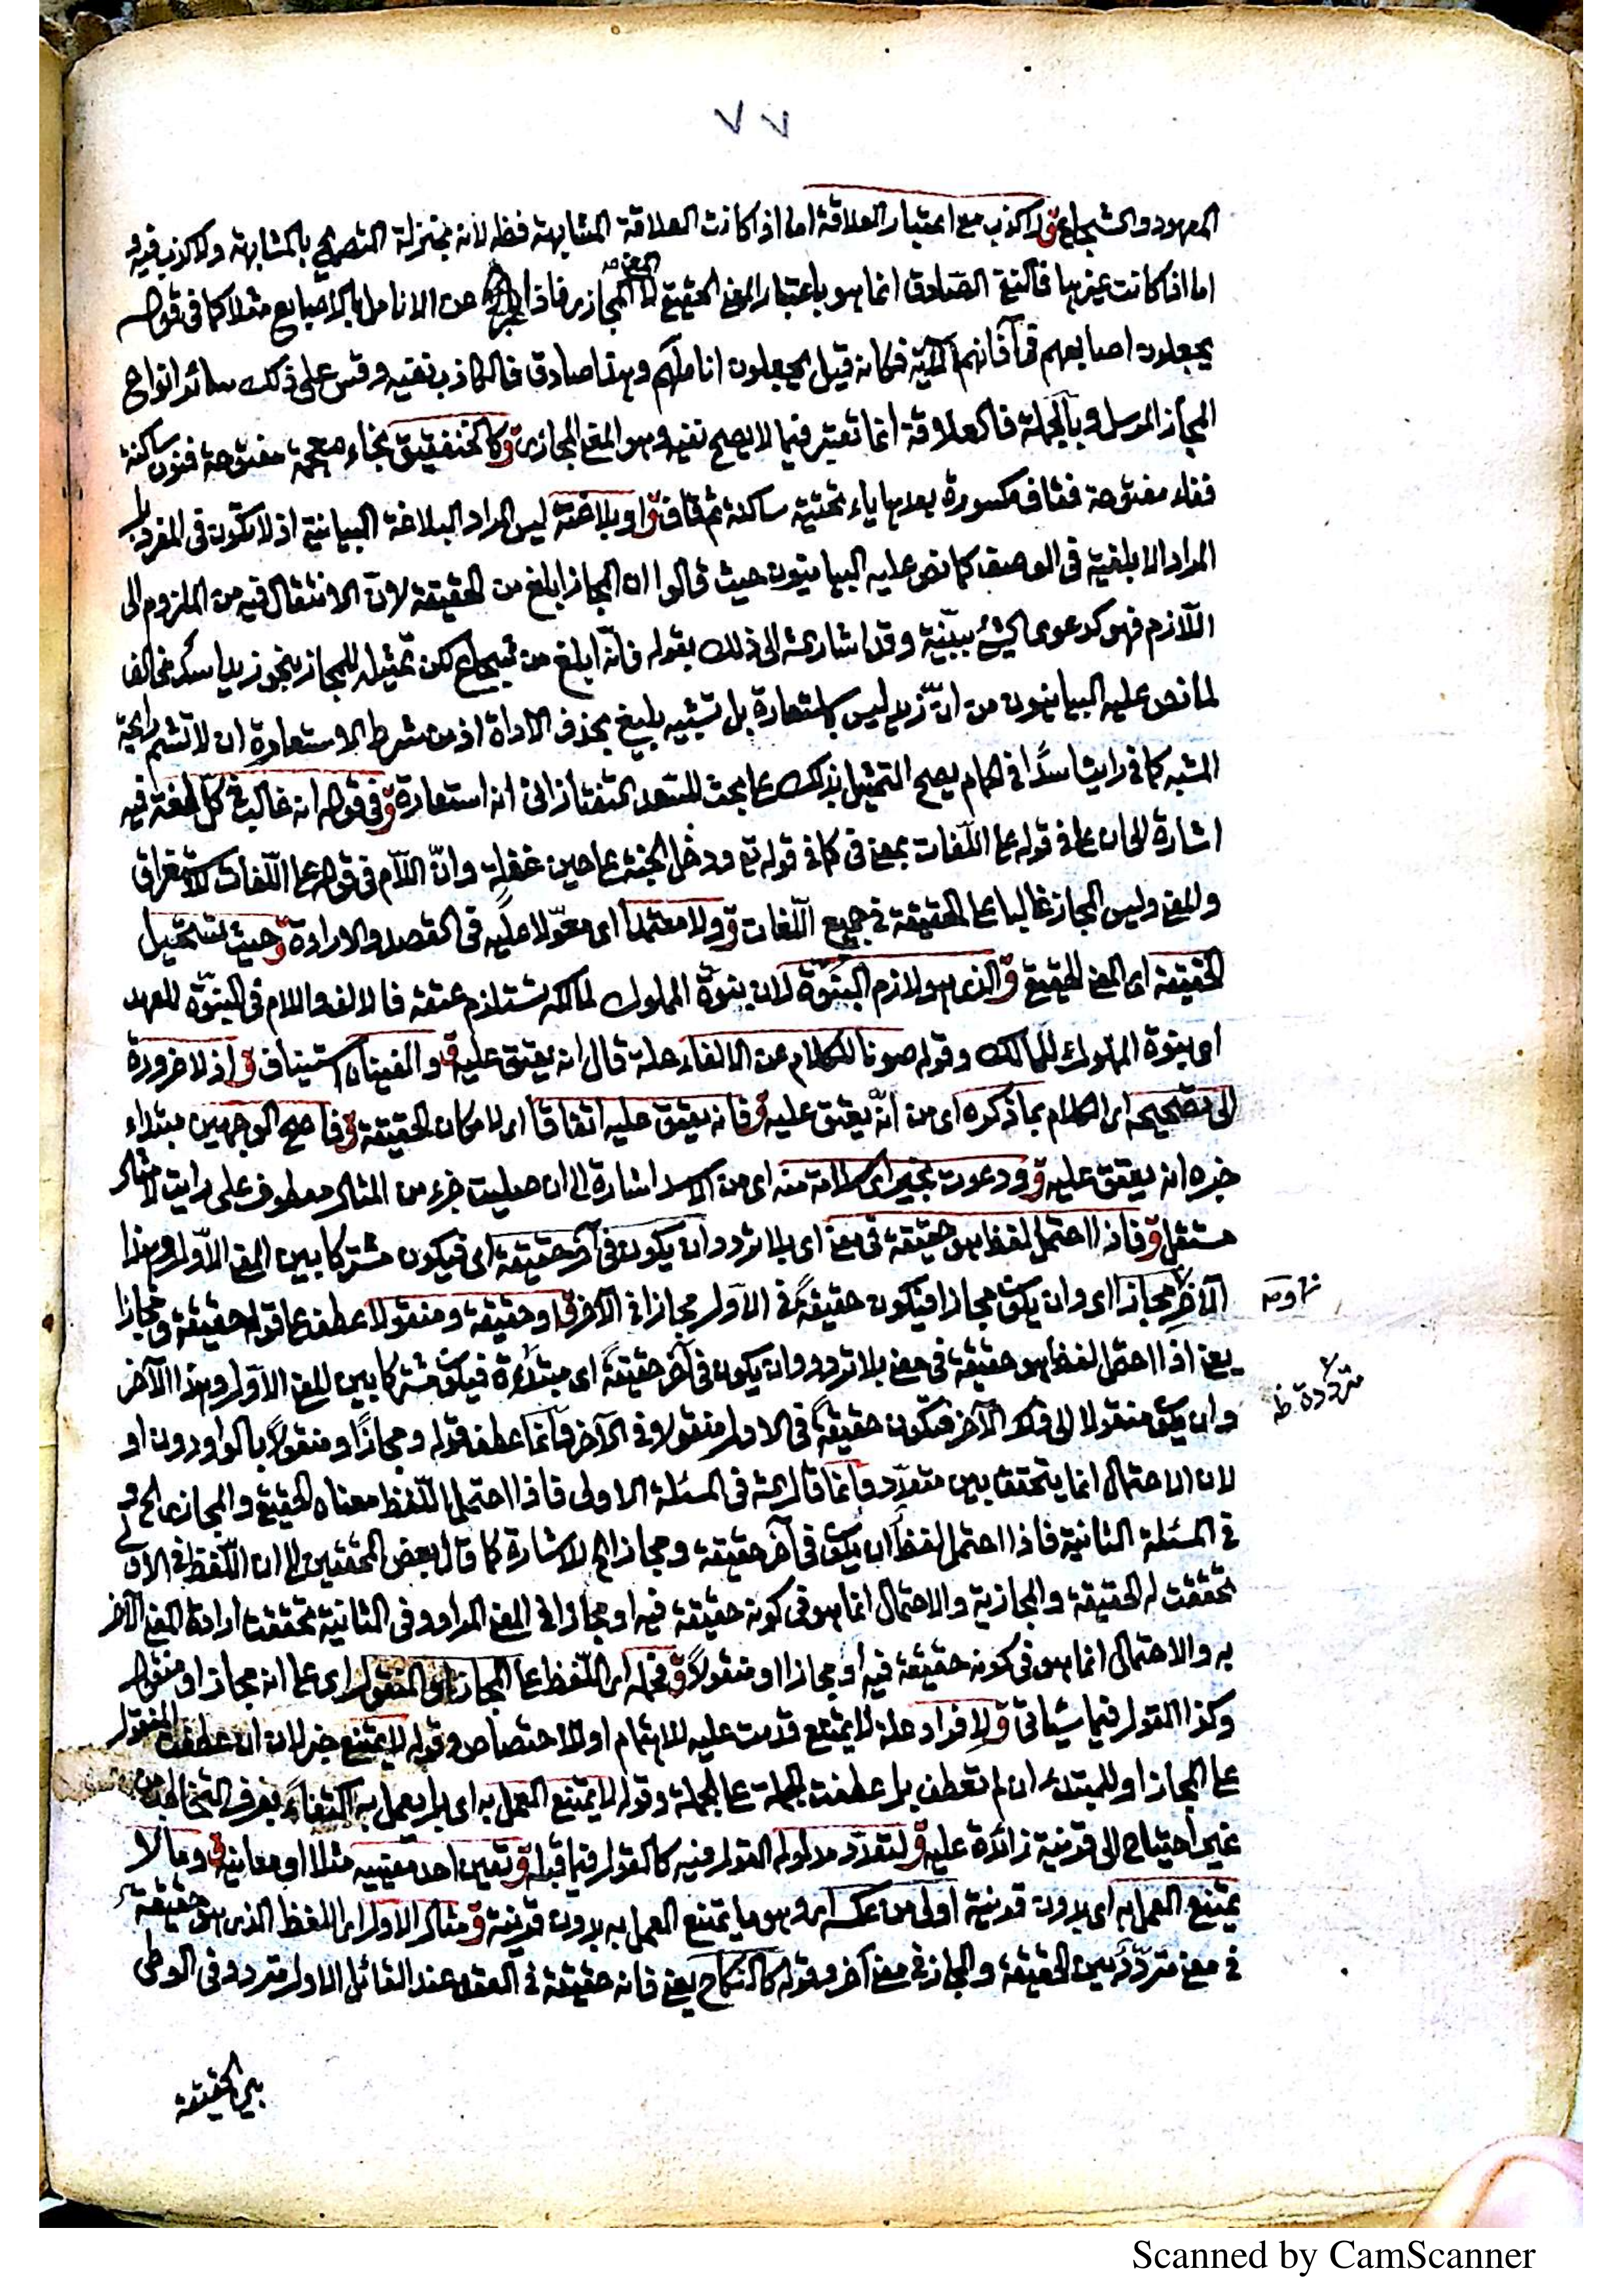 ٧٧
المعهود والشجاع ق ولا كذب مع اعتبار العلاقة اما اذا كانت العلاقة المشابهة فظ لانه بمنزلة التصريح بالمشابهة ولا كذب فيه و
اما اذا كانت غيرها فالنفي الصادق انما هو باعتبار المعنى الحقيقي لا المعنى المجازي فاذا عبر عن الانامل بالاصابع مثلا كما في قوله
يجعلون اصابعهم في آذانهم الآية فكانه قيل يجعلون اناملهم وهذا صادق فالكاذب نفيه وقس على ذلك سائر انواع
المجاز المرسل وبالجملة فالعلاقة انما تعتبر فيما لا يصح نفيه وهو المعنى المجازي ق وكالخنفقيق بخاء معجمة مفتوحة فنون ساكنة
ففاء مفتوحة فقاف مكسورة بعدها ياء تحتية ساكنة ثم قاف ق او بلاغته ليس المراد البلاغة البيانية اذ لا تكون في المفرد بل
المراد الابلغية في الوصف كما نص عليه البيانيون حيث قالوا ان المجاز ابلغ من الحقيقة لان الانتقال فيه من الملزوم الى
اللازم فهو كدعوى الشئ ببينة وقد اشار الى ذلك بقوله فانه ابلغ من شجاع لكن تمثيله للمجاز بنحو زيد اسد مخالف
لما نص عليه البيانيون من ان زيد ليس باستعارة بل تشبيه بليغ بحذف الاداة اذ من شرط الاستعارة ان لا تشم رايحة
المشبه كما في رايت اسدًا في الحمام يصح التمثيل بذلك على بحث للسعد التفتازاني انه استعارة ق في قوله انه غالب في كل لغة فيه
اشارة الى ان على في قوله على اللغات بمعنى في كما في قوله تع ودخل المدينة على حين غفلة وان اللام في قوله على اللغات للاستغراق
والمعنى وليس المجاز غالبا على الحقيقة في جميع اللغات ق ولا معتمدا اى معولا عليه في القصد والارادة ق حيث تستحيل
الحقيقة اى المعنى الحقيقي ق الذى هو لازم البنوة لان بنوة المملوك لمالكه تستلزم عتقه فالالف واللام في البنوة للعهد
اى بنوة المملوك للمالك وقوله صونا للكلام عن الالغاء علة قال انه يعتق عليه ق والغيناه استيناف ق اذ لا ضرورة
الى تصحيحه اى الكلام بما ذكره اى من انه يعتق عليه ق فانه يعتق عليه اتفاقا اى لامكان الحقيقة ق فاصح الوجهين مبتداء
خبره انه يعتق عليه ق ودعوت بخير اى سلامة منه اى من الاسد اشارة الى ان صليت جزء من المثال معطوف على رايت لا مثال
مستقل ق فاذا احتمل لفظ هو حقيقة في معنى اى بلا تردد وان يكون في آخر حقيقة اى فيكون مشتركا بين المعنى الاول وهذا
الآخر مجازا اى وان يكون مجازا فيكون حقيقةً في الاول مجازا في الآخر ق او حقيقة ومنقولا عطف على قوله حقيقة ومجازا
يعنى اذا احتمل لفظ هو حقيقة في معنى بلا تردد وان يكون في آخر حقيقةً اى مبتدأة فيكون مشتركا بين المعنى الاول وهذا الآخر
وان يكون منقولا الى ذلك الآخر فتكون حقيقةً في الاول منقولا في الآخر وانما عطف قوله ومجازًا ومنقولًا بالواو دون او
لان الاحتمال انما يتحقق بين متعدد وانما قال في المسئلة الاولى فاذا احتمل اللفظ معناه الحقيقي والمجازي الخ و
في المسئلة الثانية فاذا احتمل لفظ ان يكون في آخر حقيقة ومجازا الخ للاشارة كما قال بعض المحققين الى ان اللفظ في الاولى
تحققت له الحقيقة والمجازية والاحتمال انما هو في كونه حقيقة فيه او مجازا في المعنى المراد وفي الثانية تحققت ارادة المعنى الآخر
به والاحتمال انما هو في كونه حقيقة فيه او مجازا او منقولاً ق فحمله اى اللفظ على المجاز او المنقول اى على انه مجاز او منقول
وكذا القول فيما سيأتي ق ولافراد علة لا يمتنع قدمت عليه للاهتمام او للاختصاص وقوله لا يمتنع خبر لان ان عطفت المنقول
على المجاز او للمبتداء ان لم تعطف بل عطفت الجملة على الجملة وقوله لا يمتنع العمل به اى بل يعمل به اكتفاءً بعرف التخاطب من
غير احتياج الى قرينة زائدة عليه ق لتعدد مدلوله القول فيه كالقول فيما قبله ق تعين احد معنييه مثلا او معانيه ق وما لا
يمتنع العمل به اى بدون قرينة اولى من عكسه اى وهو ما يمتنع العمل به بدون قرينة ق مثال الاول اى اللفظ الذى هو حقيقة
في معنى متردد بين الحقيقة والمجاز في معنى آخر وقوله كالنكاح يعنى فانه حقيقة في العقد عند القائل الاول متردد في الوطى
مترددة ظ
بين الحقيقة
Scanned by CamScanner